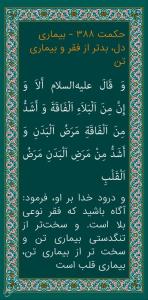 حکمت ۳۸۸ - بیماری
دل، بدتر از فقر و بیماری
تن
وَ قَالَ علیه‌السلام أَلاَ وَ
إِنَّ مِنَ اَلْبَلاَءِ اَلْفَاقَةَ وَ أَشَدُّ
مِنَ اَلْفَاقَةِ مَرَضُ اَلْبَدَنِ وَ
أَشَدُّ مِنْ مَرَضِ اَلْبَدَنِ مَرَضُ
اَلْقَلْبِ
و درود خدا بر او، فرمود:
آگاه باشید که فقر نوعی
بلا است. و سخت‌تر از
تنگدستی بیماری تن و
سخت تر از بیماری تن،
بیماری قلب است